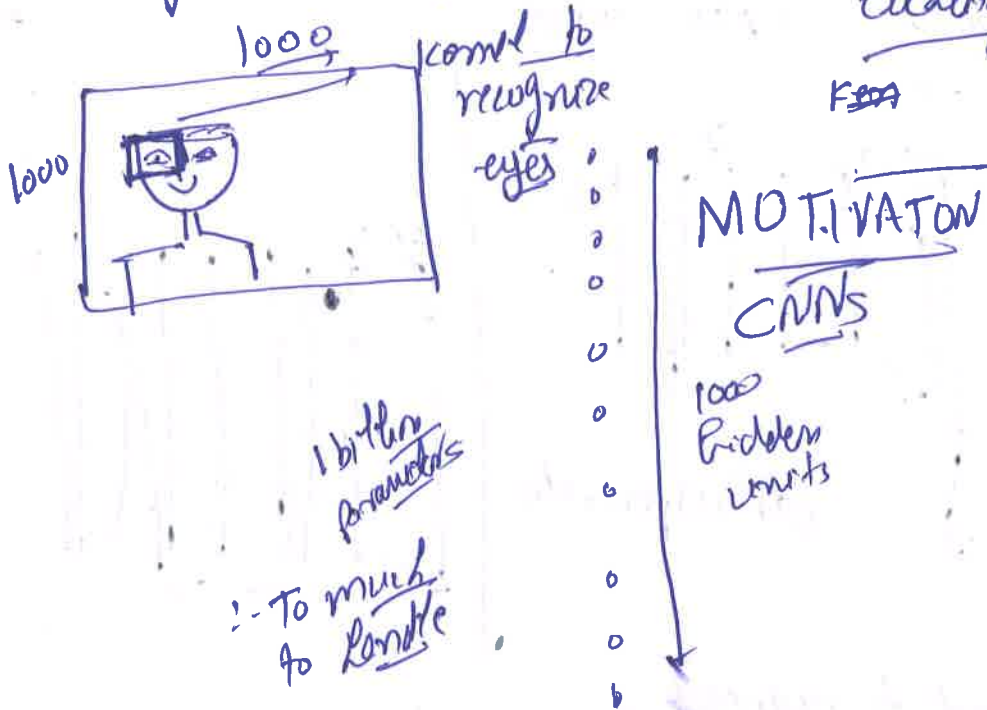 1000
1000
kernel to
recognize
eyes
MOTIVATON
CNNs
1000
hidden
units
1 billion
parameters
:- To much
to handle